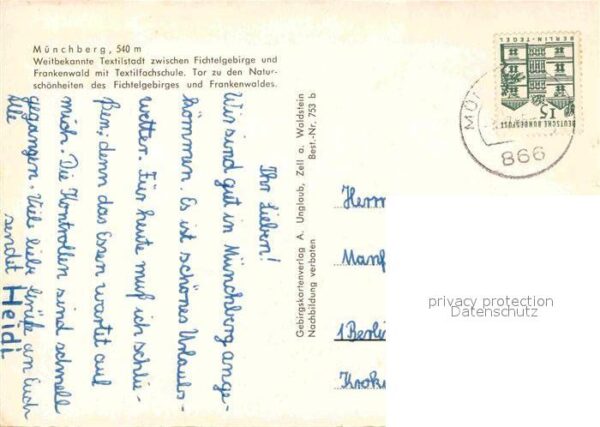 Münchberg, 540 m
Weitbekannte Textilstadt zwischen Fichtelgebirge und
Frankenwald mit Textilfachschule. Tor zu den Natur-
schönheiten des Fichtelgebirges und Frankenwaldes.
Ihr Lieben!
Wir sind gut in Münchberg ange-
kommen. Es ist schönes Urlaubs-
wetter. Für heute muß ich schlie-
ßen, denn das Essen wartet auf
mich. Die Kontrollen sind schnell
gegangen. Viele liebe Grüße an Euch
alle
sendet Heidi
Gebirgskartenverlag A. Unglaub, Zell a. Waldstein
Nachbildung verboten
Best.-Nr. 753 b
BERLIN-TEGEL
15
DEUTSCHE BUNDESPOST
MÜ
866
Herrn
Manf
1 Berli
Kroku
privacy protection
Datenschutz